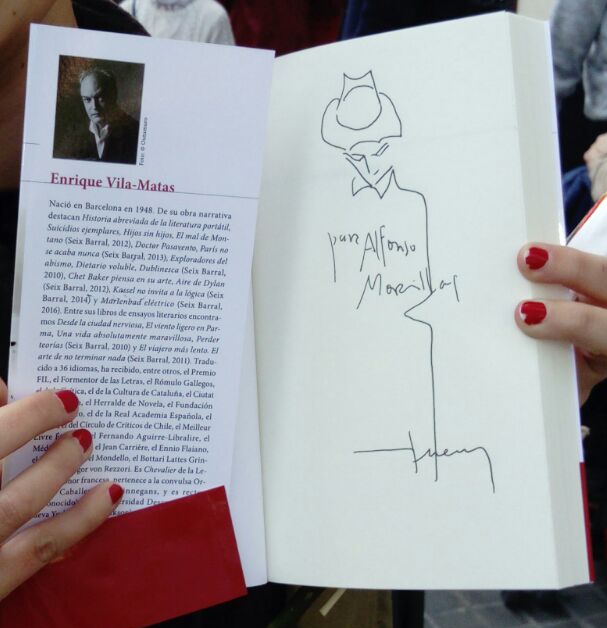 Foto: © Outumuro
Enrique Vila-Matas
Nació en Barcelona en 1948. De su obra narrativa
destacan Historia abreviada de la literatura portátil,
Suicidios ejemplares, Hijos sin hijos, El mal de Mon-
tano (Seix Barral, 2012), Doctor Pasavento, París no
se acaba nunca (Seix Barral, 2013), Exploradores del
abismo, Dietario voluble, Dublinesca (Seix Barral,
2010), Chet Baker piensa en su arte, Aire de Dylan
(Seix Barral, 2012), Kassel no invita a la lógica (Seix
Barral, 2014) y Marienbad eléctrico (Seix Barral,
2016). Entre sus libros de ensayos literarios encontra-
mos Desde la ciudad nerviosa, El viento ligero en Par-
ma, Una vida absolutamente maravillosa, Perder
teorías (Seix Barral, 2010) y El viajero más lento. El
arte de no terminar nada (Seix Barral, 2011). Tradu-
cido a 36 idiomas, ha recibido, entre otros, el Premio
FIL, el Formentor de las Letras, el Rómulo Gallegos,
el de la Crítica, el de la Cultura de Cataluña, el Ciutat
el Herralde de Novela, el Fundación
el de la Real Academia Española, el
del Círculo de Críticos de Chile, el Meilleur
Livre el Fernando Aguirre-Libralire, el
el Jean Carrière, el Ennio Flaiano,
el Mondello, el Bottari Lattes Grin-
Gregor von Rezzori. Es Chevalier de la Le-
honor francesa, pertenece a la convulsa Or-
Caballeros Finnegans, y es rector
para Alfonso
Morillas